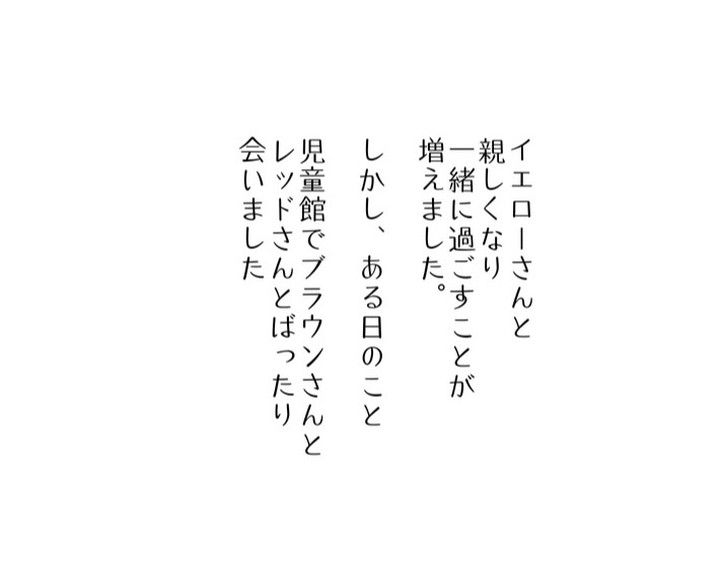 イエローさんと
親しくなり
一緒に過ごすことが
増えました。
しかし、ある日のこと
児童館でブラウンさんと
レッドさんとばったり
会いました